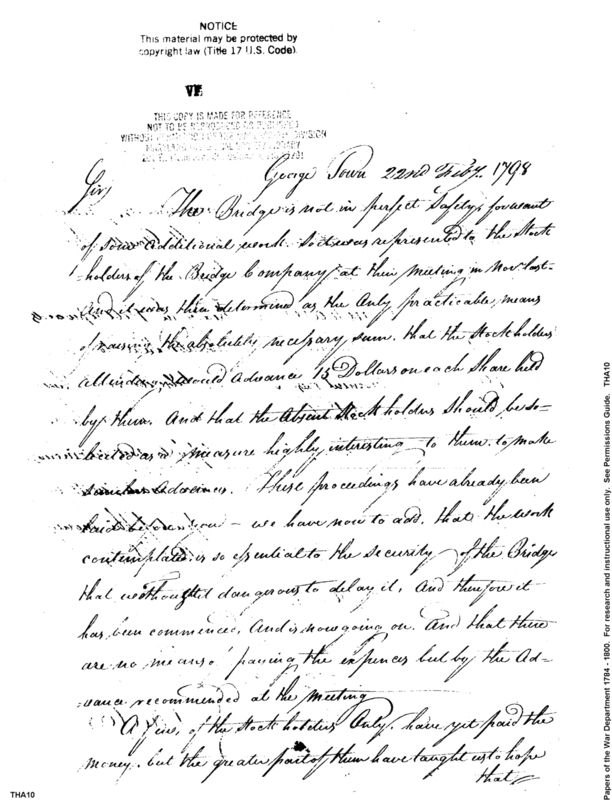 NOTICE
This material may be protected by
copyright law (Title 17 U.S. Code).
VE
THIS COPY IS MADE FOR REFERENCE
NOT TO BE REPRODUCED OR
WITHOUT DIVISION
George Town 22nd Feby. 1798
Sir,
The Bridge is not in perfect Safety, for want
of some additional work. So it was represented to the Stock
-holders of the Bridge Company at their meeting in Novr. last-
And it was then determined as the Only practicable means
of raising the absolutely necessary sum. that the Stockholders
attending should Advance 15 Dollars on each Share held
by them. And that the Absent Stockholders should be so-
licited as a measure highly interesting to them to make
similar Advances. These proceedings have already been
laid before you - we have now to add, that the work
contemplated is so essential to the security of the Bridge
that we thought it dangerous to delay it, And therefore it
has been commenced, And is now going on. And that there
are no means of paying the expences but by the Ad-
-vance recommended at the meeting
A few, of the Stockholders Only, have yet paid the
money. but the greater part of them have taught us to hope
that
THA10
Papers of the War Department 1784 - 1800. For research and instructional use only. See Permissions Guide. THA10